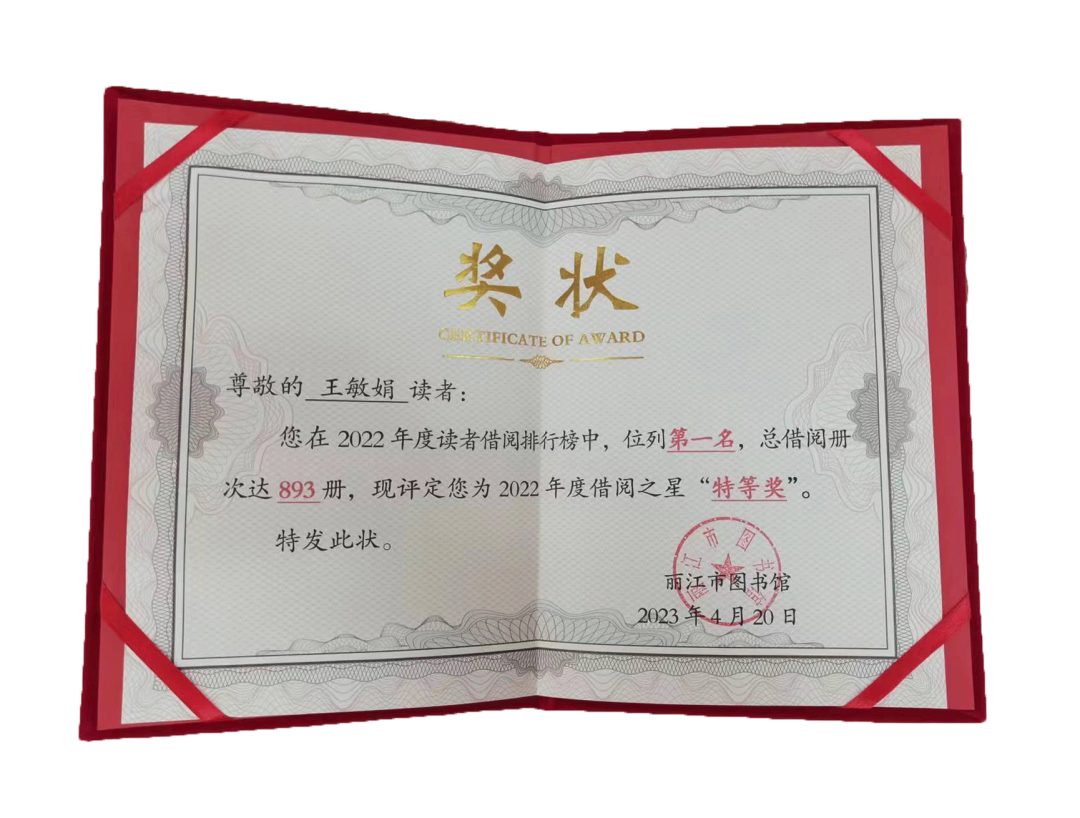 奖状
CERTIFICATE OF AWARD
尊敬的 王敏娟 读者：
您在 2022 年度读者借阅排行榜中，位列第一名，总借阅册
次达 893 册，现评定您为 2022 年度借阅之星“特等奖”。
特发此状。
丽江市图书馆
丽江市图书馆
2023 年 4 月 20 日